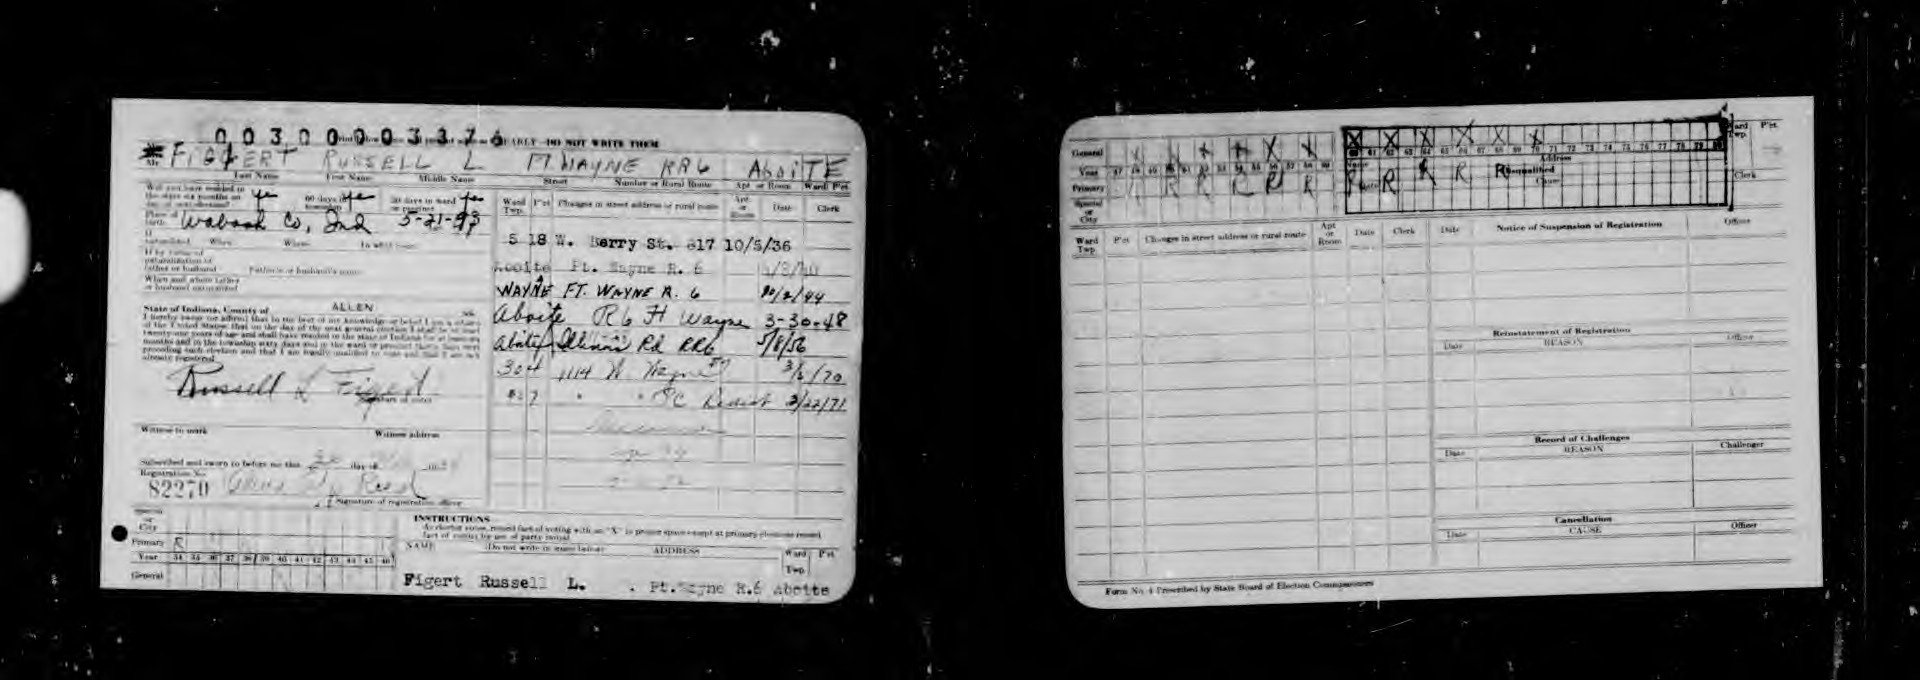 0030000337
CLEARLY DO NOT WRITE THEM
Mr. FIGERT RUSSELL L FT WAYNE RR6 ABOITE
Last Name First Name Middle Name Street Number or Rural Route Apt. or Room Ward P'ct.
Will you have resided in the state six months on day of next election? yes 60 days in township yes 30 days in ward or precinct yes
Place of birth Wabash Co, Ind 5-21-93
If naturalized When Where In what court
If by virtue of naturalization of father or husband Father's or husband's name
When and where father or husband naturalized
State of Indiana, County of ALLEN ss.
I hereby swear (or affirm) that to the best of my knowledge or belief I am a citizen
of the United States; that on the day of the next general election I shall be at least
twenty-one years of age and shall have resided in the state of Indiana for at least six
months and in the township sixty days and in the ward or precinct thirty days next
preceding such election and that I am legally qualified to vote and that I am not
already registered.
Russell L Figert
Signature of voter
Witness to mark Witness address
Subscribed and sworn to before me this day of
Registration No.
82270
Signature of registration officer
Ward Twp. P'ct. Changes in street address or rural route Apt. or Room Date Clerk
5 18 W. Berry St. 817 10/5/36
Aboite Ft. Wayne R. 6
WAYNE FT. WAYNE R. 6 10/2/44
Aboite R6 Ft Wayne 3-30-48
Aboite Illinois Rd RR6 5/8/56
304 1114 W Wayne St 70
" " PC Redist 3/22/71
Special or City
Primary R
Year 34 35 36 37 38 39 40 41 42 43 44 45 46
General
INSTRUCTIONS
At election voter, record fact of voting with an "X" in proper space except at primary elections record
fact of voting by use of party initial.
NAME Do not write in space below ADDRESS Ward Twp. P'ct.
Figert Russell L. Ft.Wayne R.6 Aboite
General X X X X X X X X X X X
Year 47 48 49 50 51 52 53 54 55 56 57 58 59 60 61 62 63 64 65 66 67 68 69 70 71 72 73 74 75 76 77 78 79 80
Primary R R R R R R R R R R
Special or City
Name Address Ward Twp. P'ct.
Date Disqualified Cause Clerk
Ward Twp P'ct Changes in street address or rural route Apt or Room Date Clerk
Date Notice of Suspension of Registration Officer
Reinstatement of Registration
Date REASON Officer
Record of Challenges
Date REASON Challenger
Cancellation
Date CAUSE Officer
Form No. 4 Prescribed by State Board of Election Commissioners